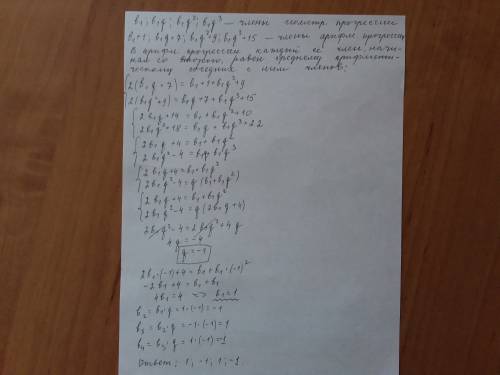 b₁; b₁q; b₁q²; b₁q³ — члены геометр прогрессии
b₁+1; b₁q+7; b₁q²+9; b₁q³+15 — члены арифм. прогрессии
В арифм. прогрессии каждый её член, начи-
ная со второго, равен среднему арифмети-
ческому соседних с ним членов:
2(b₁q+7) = b₁+1+b₁q²+9
2(b₁q²+9) = b₁q+7+b₁q³+15
2b₁q+14 = b₁+b₁q²+10
2b₁q²+18 = b₁q+b₁q³+22
2b₁q+4 = b₁+b₁q²
2b₁q²-4 = b₁q+b₁q³
2b₁q+4 = b₁+b₁q²
2b₁q²-4 = q(b₁+b₁q²)
2b₁q+4 = b₁+b₁q²
2b₁q²-4 = q(2b₁q+4)
2b₁q²-4 = 2b₁q²+4q
4q = -4
q = -1
2b₁·(-1)+4 = b₁+b₁·(-1)²
-2b₁+4 = b₁+b₁
4b₁ = 4 => b₁=1
b₂ = b₁·q = 1·(-1) = -1
b₃ = b₂·q = -1·(-1) = 1
b₄ = b₃·q = 1·(-1) = -1
Ответ: 1; -1; 1; -1